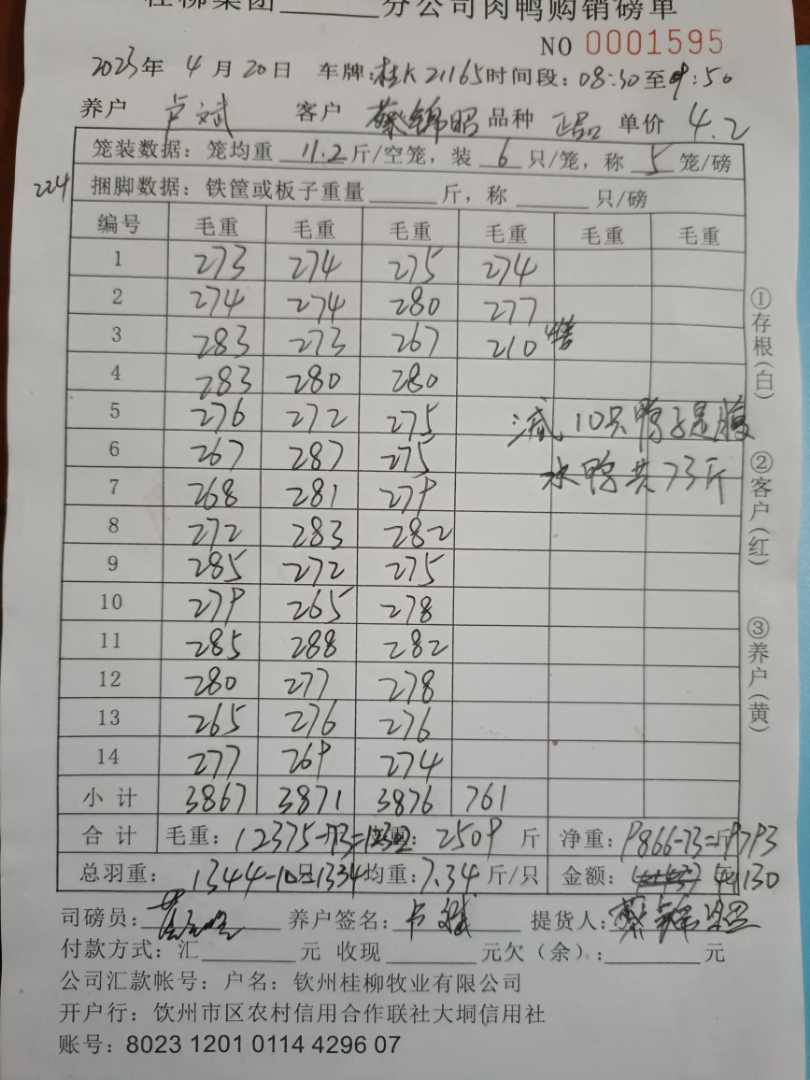 桂柳集团______分公司肉鸭购销磅单
NO 0001595
2023年 4月20日 车牌:桂K21165时间段:08:30至09:50
养户 卢斌 客户 蔡锦昭 品种 正品 单价 4.2
笼装数据:笼均重 11.2 斤/空笼,装 6 只/笼,称 5 笼/磅
224
捆脚数据:铁筐或板子重量______斤,称______只/磅
编号 毛重 毛重 毛重 毛重 毛重 毛重
1 273 274 275 274
2 274 274 280 277
3 283 273 267 210
4 283 280 280
5 276 272 275
减10只鸭子是腹
6 267 287 275
水鸭共73斤
7 268 281 279
8 272 283 282
9 285 272 275
10 279 265 278
11 285 288 282
12 280 277 278
13 265 276 276
14 277 269 274
小计 3867 3871 3876 761
合计 毛重:12375-73= 2509 斤 净重:9866-73=斤9793
总羽重:1344-10只=1334 均重:7.34 斤/只 金额: 41130
司磅员: 养户签名:卢斌 提货人:蔡锦昭
付款方式:汇______元 收现______元欠(余):______元
公司汇款帐号:户名:钦州桂柳牧业有限公司
开户行:钦州市区农村信用合作联社大垌信用社
账号:8023 1201 0114 4296 07
①存根(白)
②客户(红)
③养户(黄)